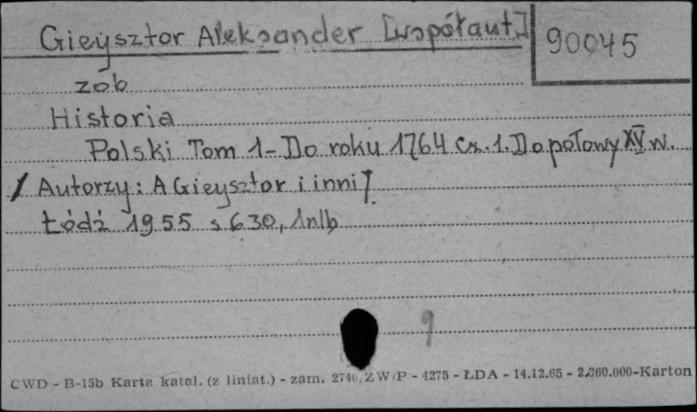 Gieysztor Aleksander [współaut.]
90045
zob
Historia
Polski Tom 1-Do roku 1764 Cz.1.Do połowy XV w.
/Autorzy: A Gieysztor i inni/.
Łódź 1955 s 630, 1nlb
9
CWD - B-15b Karta katal. (z liniat.) - zam. 2740/ZW/P - 4275 - ŁDA - 14.12.65 - 2.360.000-Karton